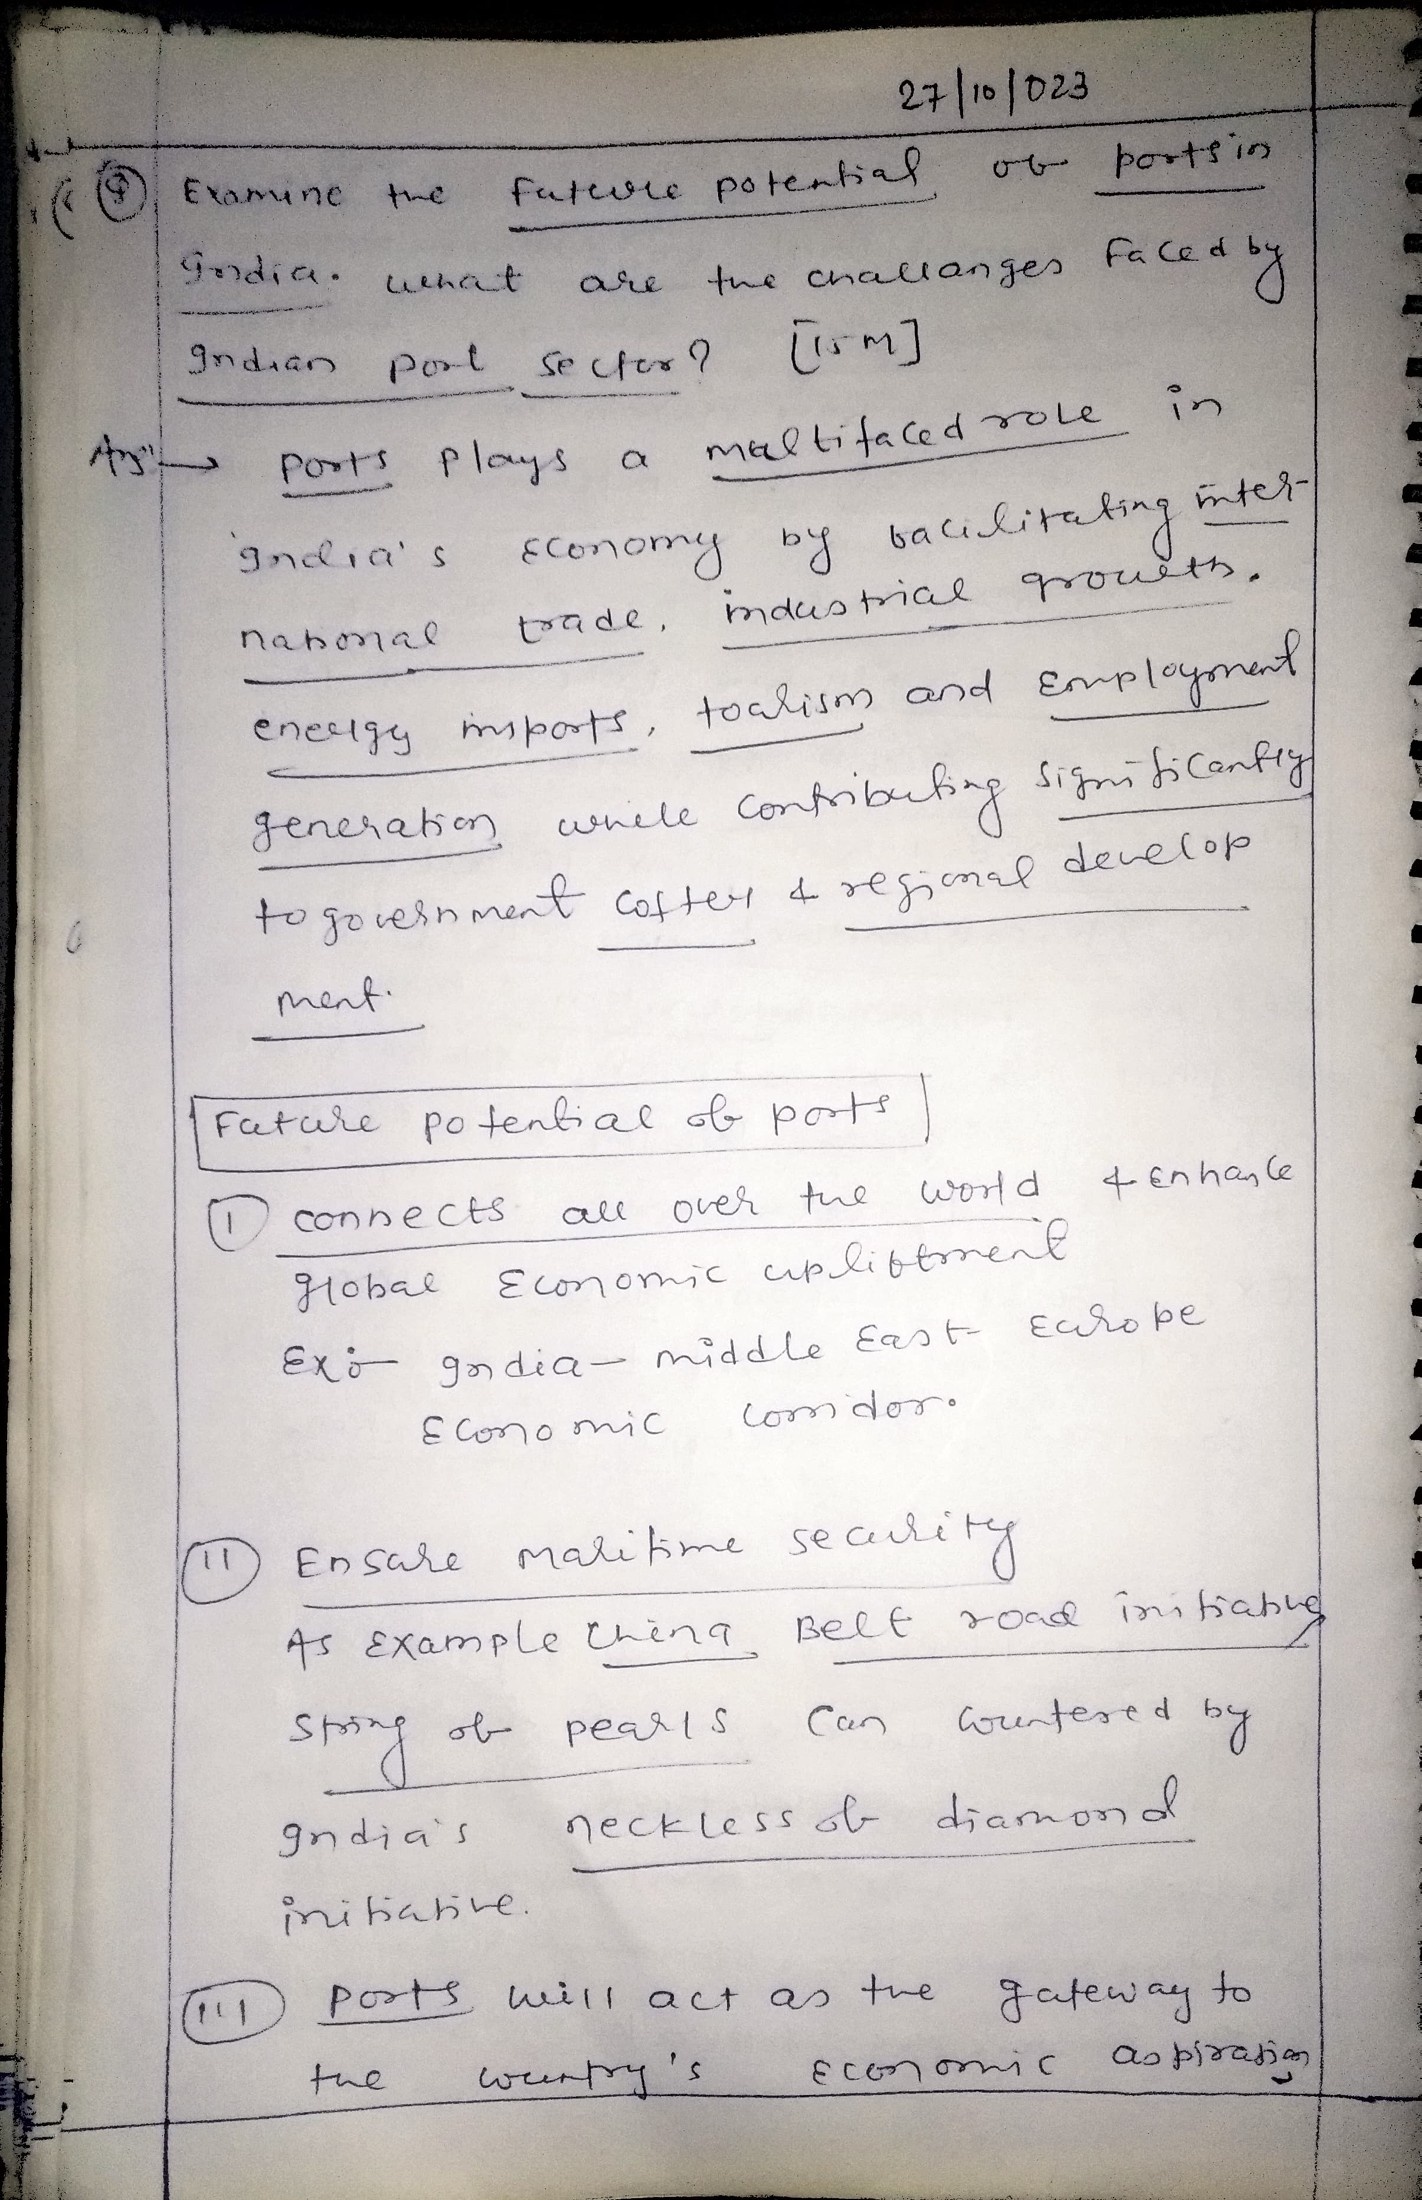 27/10/023
Q Examine the future potential of ports in
India. what are the challanges faced by
Indian port sector? [15M]
Ans → Ports plays a multifaced role in
India's economy by facilitating inter-
national trade, industrial growth,
energy imports, tourism and employment
generation while contributing significantly
to government coffers & regional develop
ment.
Future potential of ports
I connects all over the world & enhance
global Economic upliftment
Ex:- India - middle East Europe
Economic corridor.
II Ensure maritime security
As Example China Belt road initiative
String of pearls can countered by
India's neckless of diamond
initiative.
III Ports will act as the gateway to
the country's economic aspiration